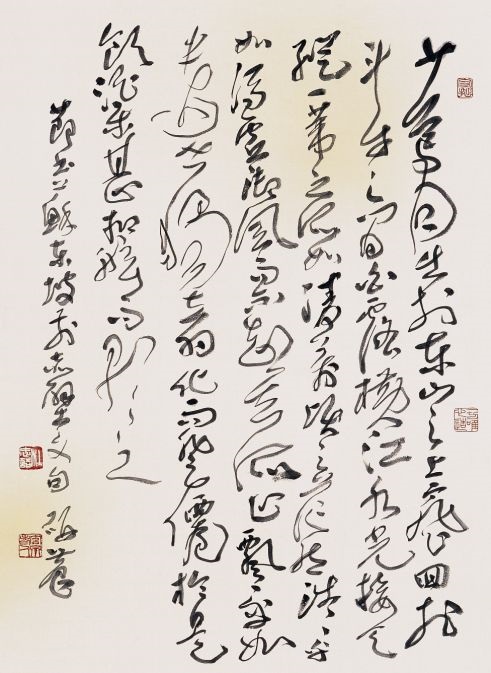 少焉月出於東山之上徘徊於
斗牛之間白露橫江水光接天
縱一葦之所如凌萬頃之茫然浩浩乎
如馮虛御風而不知其所止飄飄乎如
遺世獨立羽化而登僊於是
飲酒樂甚扣舷而歌之
節書蘇東坡前赤壁文句